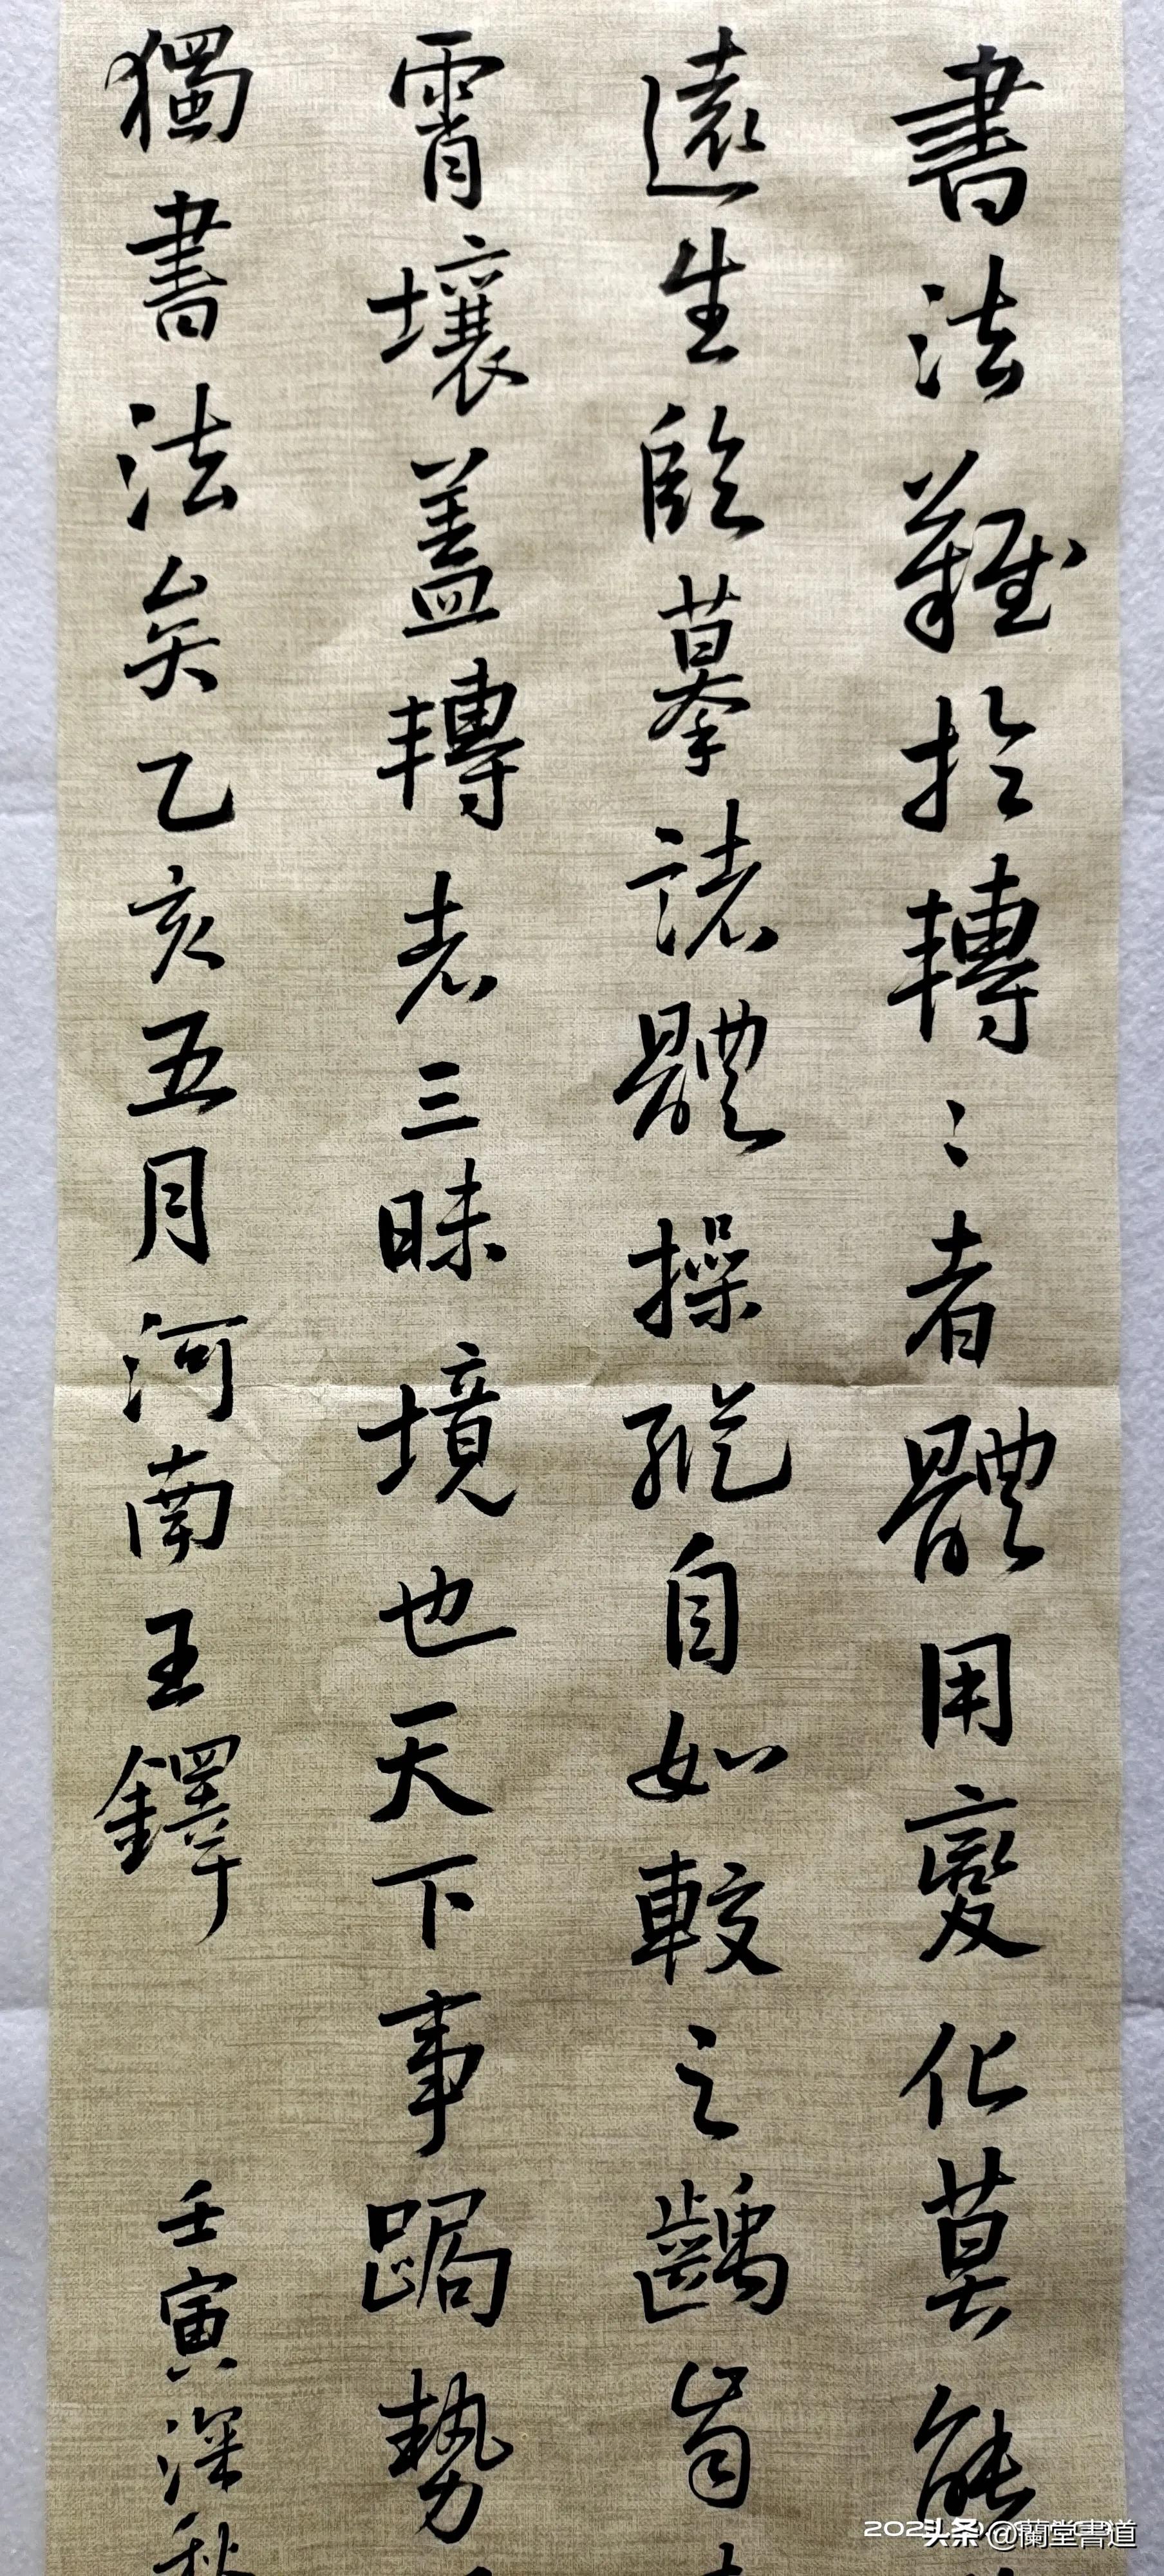 書法難於轉轉〻者體用變化莫能
遠生臨摹諸體操縱自如較之齲肯
霄壤蓋轉者三昧境也天下事跼勢
獨書法矣乙亥五月河南王鐸
壬寅深秋
头条 @蘭堂書道